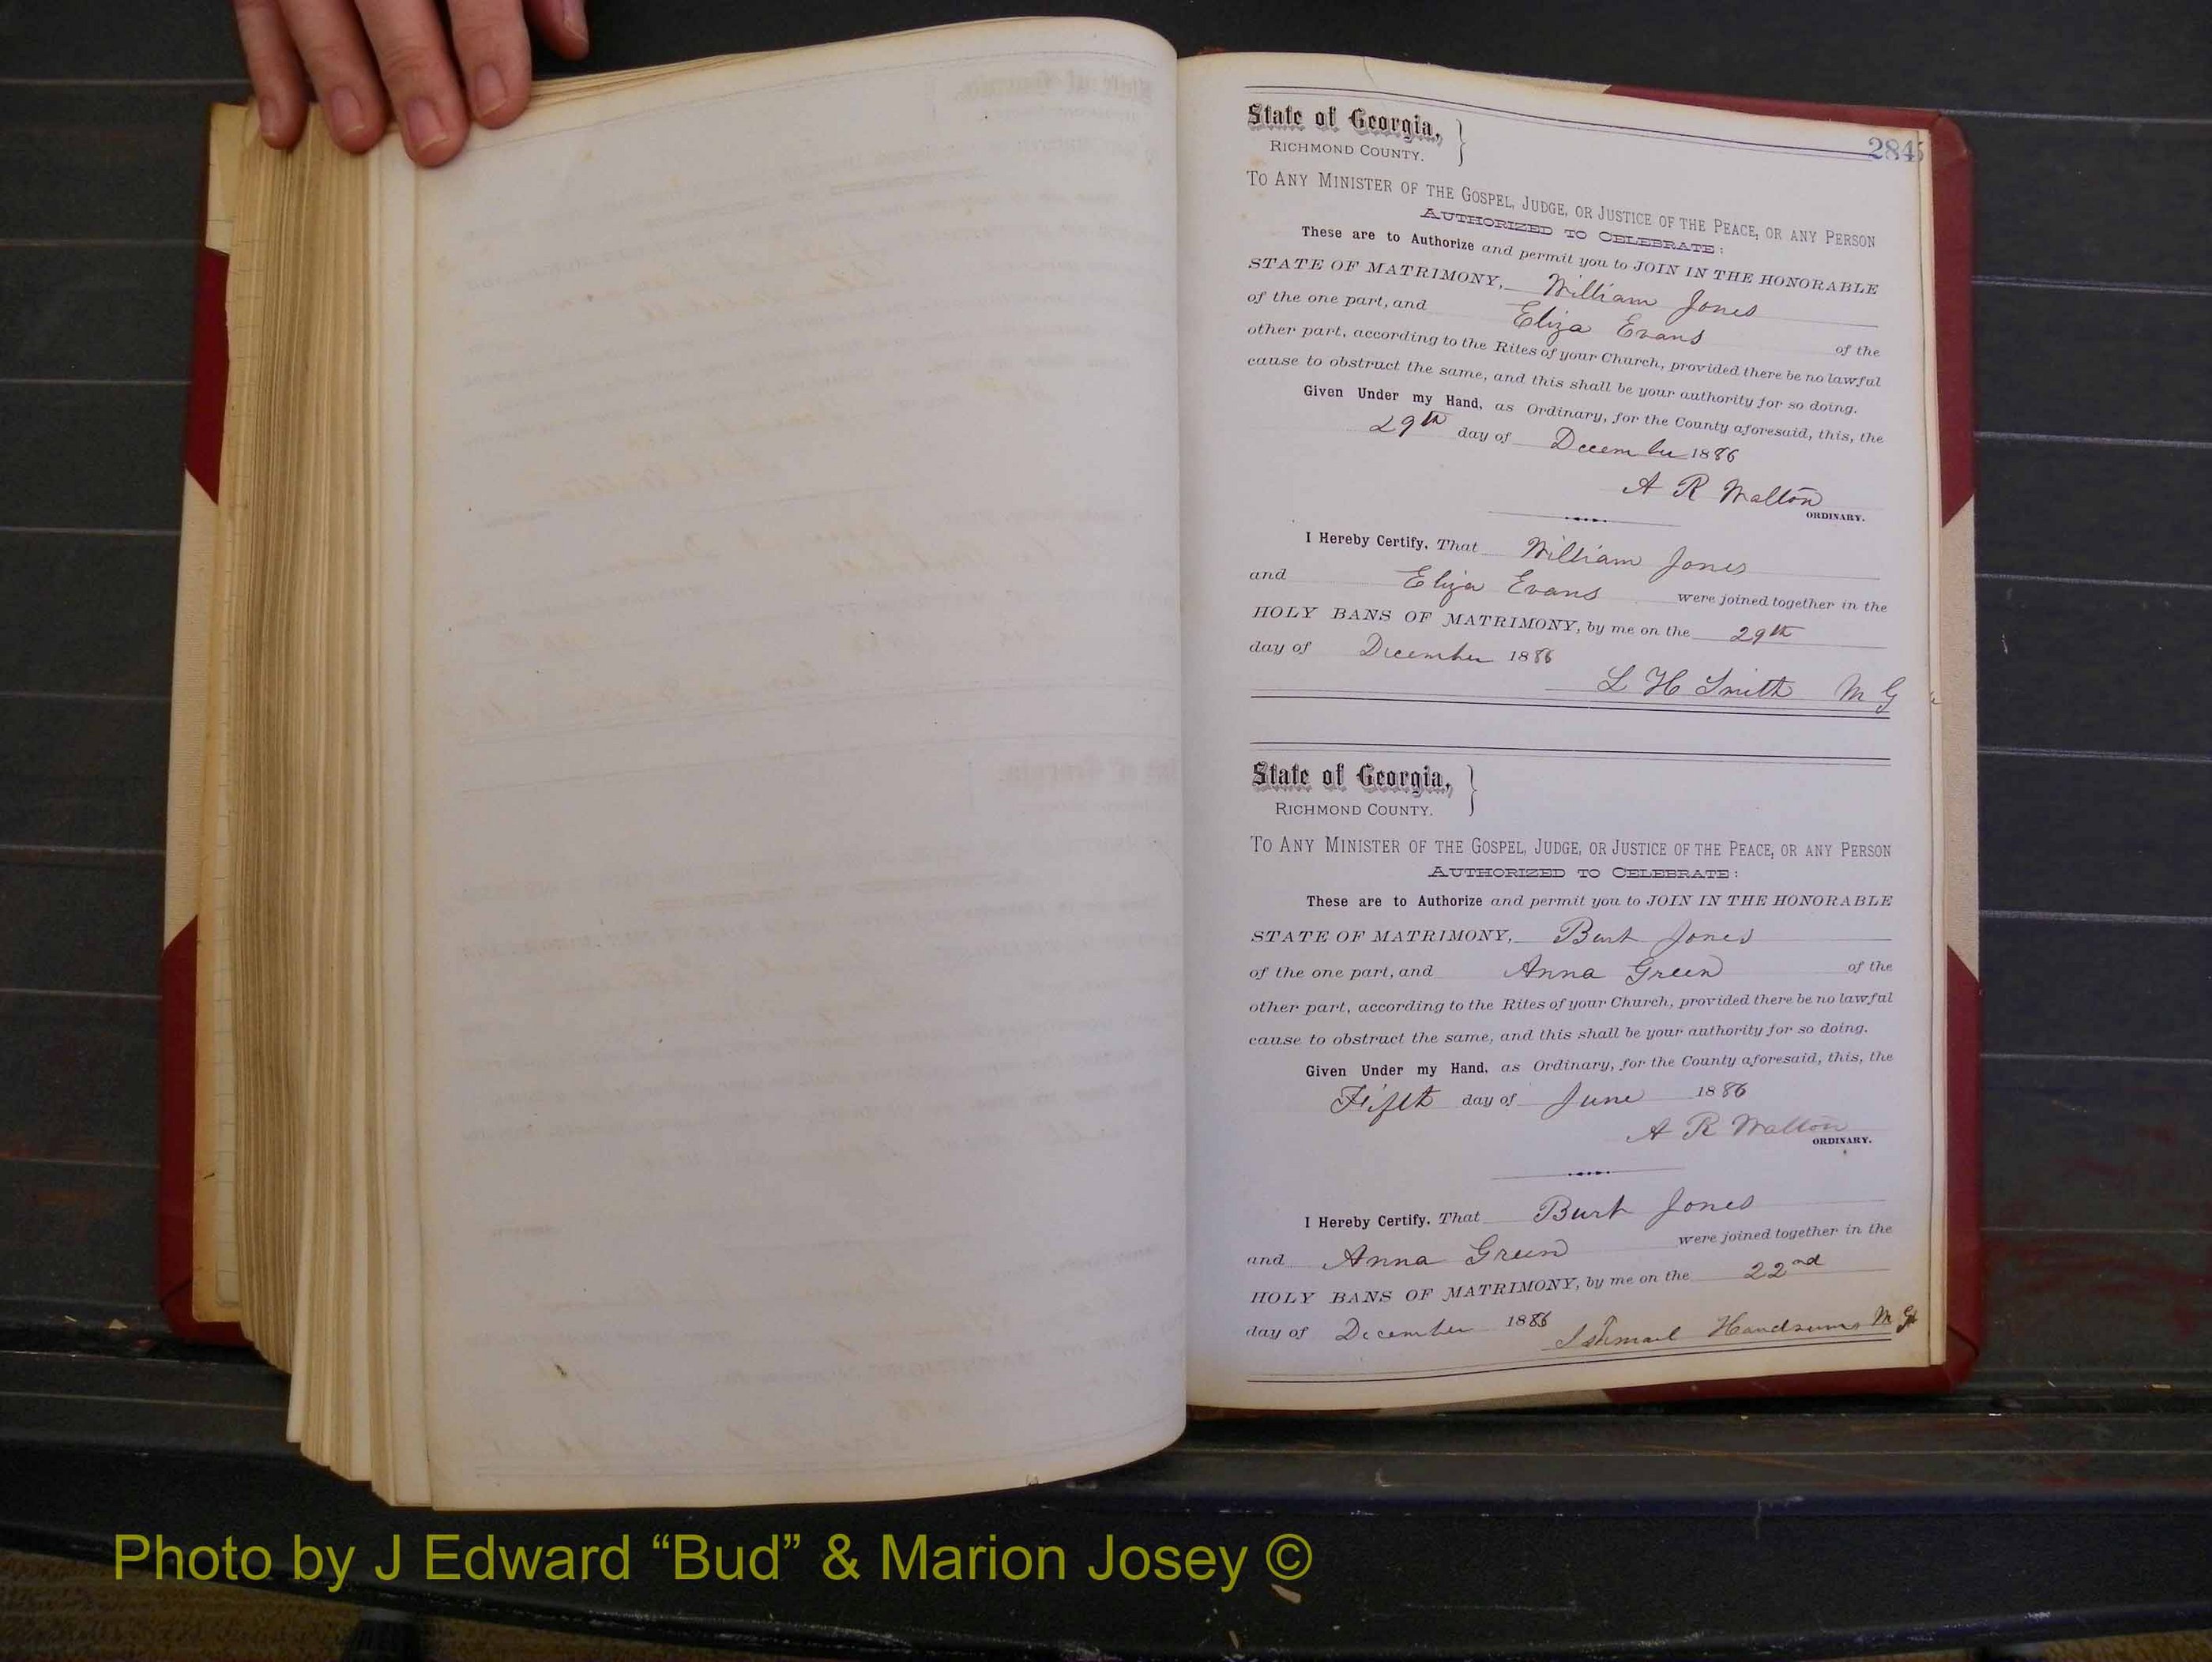 284
State of Georgia, }
RICHMOND COUNTY.
TO ANY MINISTER OF THE GOSPEL, JUDGE, OR JUSTICE OF THE PEACE, OR ANY PERSON
AUTHORIZED TO CELEBRATE:
These are to Authorize and permit you to JOIN IN THE HONORABLE
STATE OF MATRIMONY, William Jones
of the one part, and Eliza Evans of the
other part, according to the Rites of your Church, provided there be no lawful
cause to obstruct the same, and this shall be your authority for so doing.
Given Under my Hand, as Ordinary, for the County aforesaid, this, the
29th day of December 1886
A R Walton
ORDINARY.
I Hereby Certify, That William Jones
and Eliza Evans were joined together in the
HOLY BANS OF MATRIMONY, by me on the 29th
day of December 1886
L H Smith M G
State of Georgia, }
RICHMOND COUNTY.
TO ANY MINISTER OF THE GOSPEL, JUDGE, OR JUSTICE OF THE PEACE, OR ANY PERSON
AUTHORIZED TO CELEBRATE:
These are to Authorize and permit you to JOIN IN THE HONORABLE
STATE OF MATRIMONY, Burt Jones
of the one part, and Anna Green of the
other part, according to the Rites of your Church, provided there be no lawful
cause to obstruct the same, and this shall be your authority for so doing.
Given Under my Hand, as Ordinary, for the County aforesaid, this, the
Fifth day of June 1886
A R Walton
ORDINARY.
I Hereby Certify, That Burt Jones
and Anna Green were joined together in the
HOLY BANS OF MATRIMONY, by me on the 22nd
day of December 1886
M G
Photo by J Edward “Bud” & Marion Josey ©